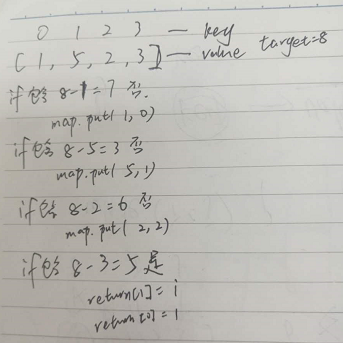 0 1 2 3 — key
[1, 5, 2, 3] — value target=8
if包含 8-1=7 否
map.put( 1, 0)
if包含 8-5=3 否
map.put( 5, 1)
if包含 8-2=6 否
map.put( 2, 2)
if包含 8-3=5 是
return[1]= i
return[0]= 1